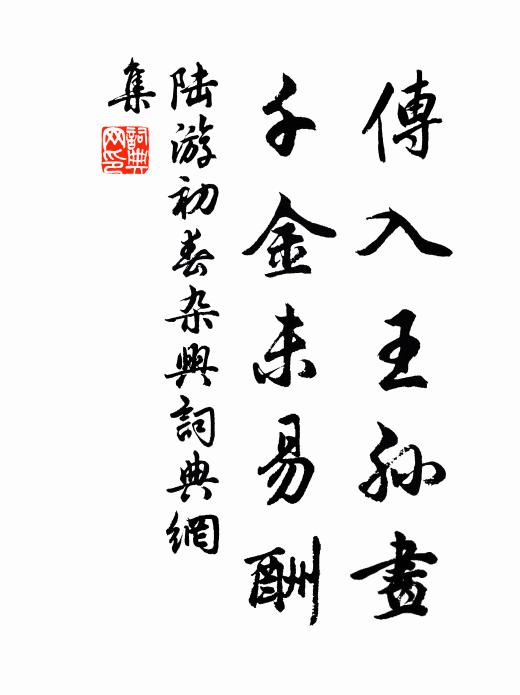 傳入王孫畫
千金未易酬
陸游初春杂興詞典網
集
詞典
网印